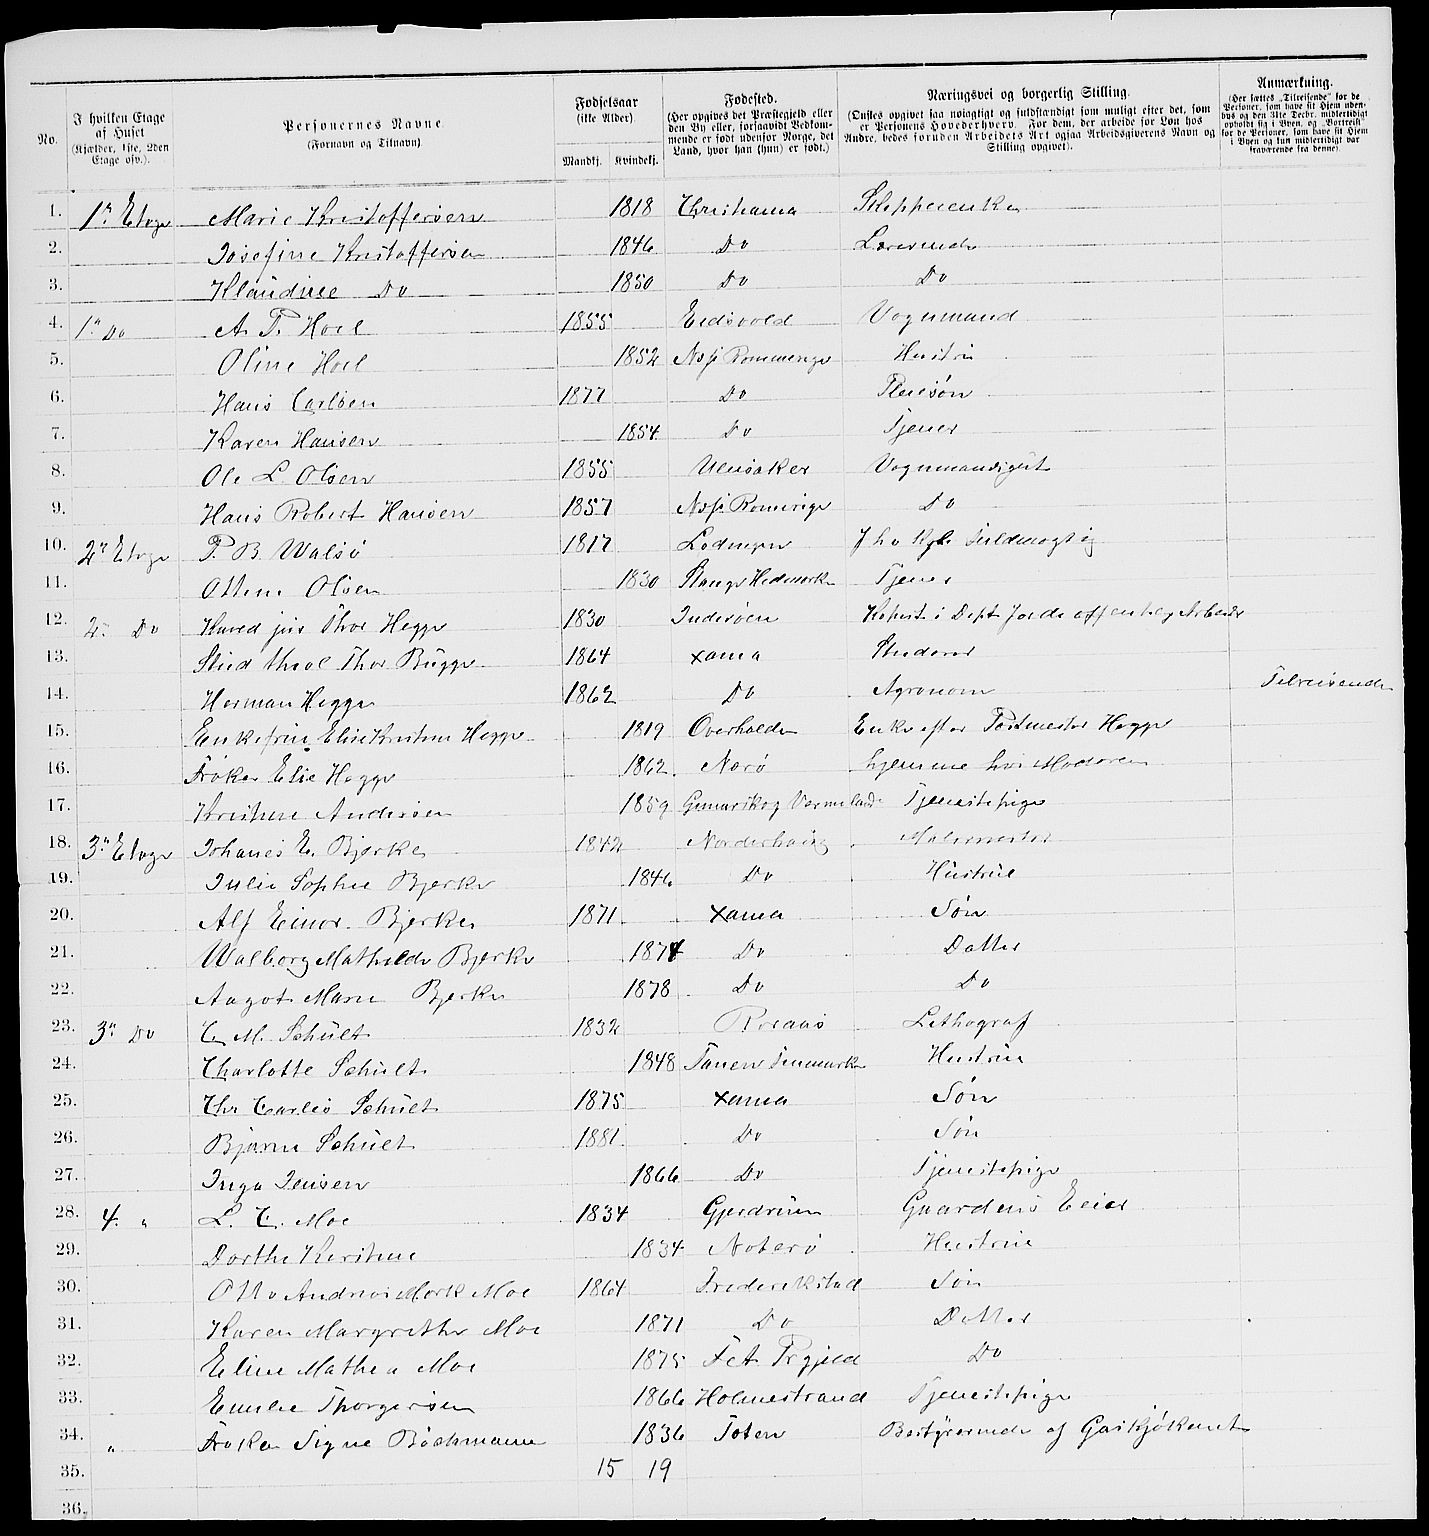 No.
I hvilken Etage af Huset (Kjælder, 1ste, 2den Etage osv.).
Personernes Navne. (Fornavn og Tilnavn)
Fødselsaar (ikke Alder)
Mandkj. Kvindekj.
Fødested. (Her opgives det Præstegjeld eller den By eller, forsaavidt Vedkommende er født udenfor Norge, det Land, hvor han (hun) er født.)
Næringsvei og borgerlig Stilling. (Ønskes opgivet saa nøiagtigt og fuldstændigt som muligt efter det, som er Personens Hovederhverv. For dem, der arbeide for Løn hos Andre, bedes foruden Arbeidets Art ogsaa Arbeidsgiverens Navn og Stilling opgivet).
Anmærkning. (Her sættes „Tilreisende“ for de Personer, som have sit Hjem udenbys og den 31te Decbr. midlertidigt opholdt sig i Byen, og „Bortreist“ for de Personer, som have sit Hjem i Byen og kun midlertidigt var fraværende fra denne)
1. 1ʳ Etage Marie Kristoffersen 1818 Christiania Skipperenke
2. Josefine Kristoffersen 1846 Do Lærerinde
3. Klaudine Do 1850 Do Do
4. 1ⁿ Do A. P. Hoel 1855 Eidsvold Vognmand
5. Oline Hoel 1852 Næs Romerige Hustru
6. Hans Carlsen 1877 Do Pleiesøn
7. Karen Hansen 1854 Do Tjener
8. Ole L. Olsen 1855 Ullensaker Vognmandsgut
9. Hans Robert Hansen 1857 Næs Romerige Do
10. 2ʳ Etage P. B. Walsö 1817 Lødingen Fuldmægtig
11. Oline Olsen 1830 Stange Hedmarken Tjener
12. 2. Do Kand jur Thor Hegge 1830 Inderøen Kopist i Dept for de offentlige Arbeider
13. Stud Thor Bugge 1864 Xania Student
14. Herman Hegge 1862 Do Agronom Tilreisende
15. Enkefru Elise Kristine Hegge 1819 Overhalden Enke efter Postmester Hegge
16. Frøken Elie Hegge 1862 Nærø hjemme hos Moderen
17. Kristine Andersen 1859 Gunnarskog Vermeland Tjenestepige
18. 3ⁿ Etage Johanes E. Bjerke 1842 Norderhoug Malermester
19. Julie Sophie Bjerke 1846 Do Hustrue
20. Alf Einar Bjerke 1871 Xania Søn
21. Walborg Mathilde Bjerke 1874 Do Datter
22. Aagot Marie Bjerke 1878 Do Do
23. 3ⁿ Do C. M. Schult 1832 Røraas Lithograf
24. Charlotte Schult 1848 Tanen Finmarken Hustrue
25. Chr Carlis Schult 1875 Xania Søn
26. Bjarne Schult 1881 Do Søn
27. Inga Jensen 1866 Do Tjenestepige
28. 4. „ L. C. Moe 1834 Gjerdrum Gaardens Eier
29. Dorthe Kirstine 1834 Noterø Hustrue
30. Otto Andreas Mork Moe 1864 Frederikstad Søn
31. Karen Margrethe Moe 1871 Do Datter
32. Eline Mathea Moe 1875 Fet Prgjeld Do
33. Emilie Thorgersen 1866 Holmestrand Tjenestepige
34. „ Frøken Signe Bøchmann 1836 Toten Bestyrerinde af Gaskjøkenet
35. 15 19
36.